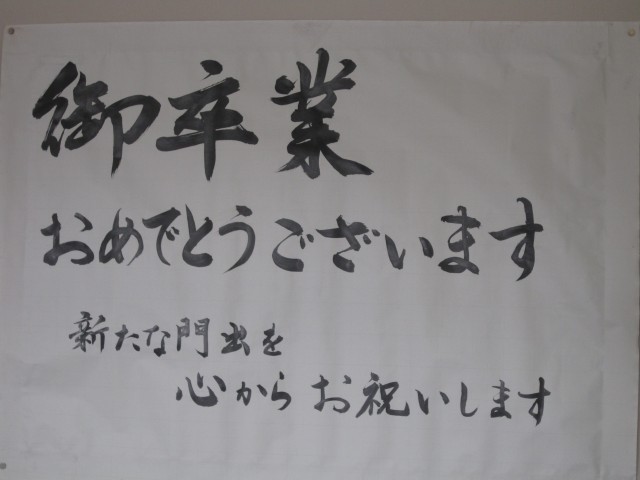 御卒業
おめでとうございます
新たな門出を
心からお祝いします